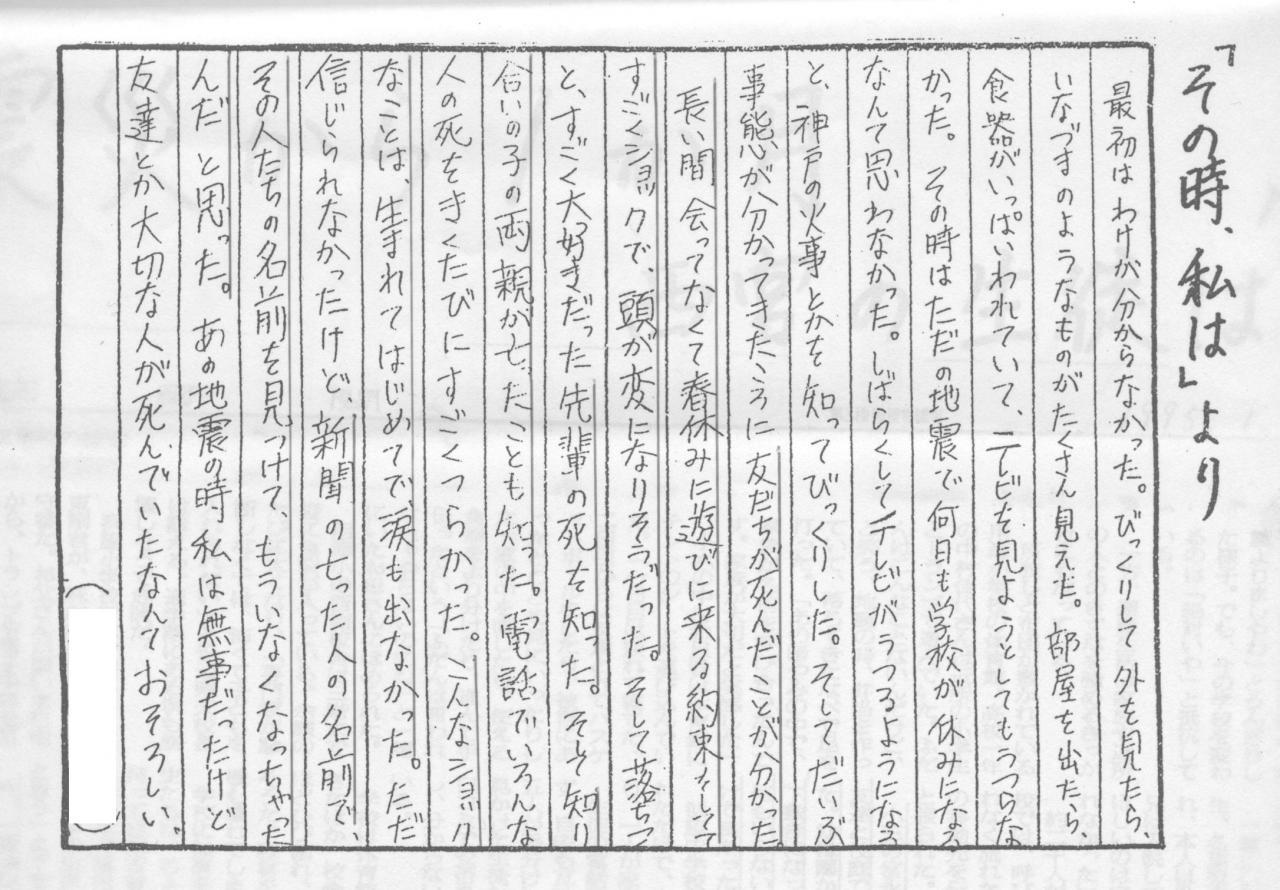 「その時、私は」より
最初はわけが分からなかった。びっくりして外を見たら、
いなづまのようなものがたくさん見えた。部屋を出たら、
食器がいっぱいわれていて、テレビを見ようとしてもつかな
かった。その時はただの地震で何日も学校が休みになる
なんて思わなかった。しばらくしてテレビがうつるようになる
と、神戸の火事とかを知ってびっくりした。そしてだいぶ
事態が分かってきたころに友だちが死んだことが分かった。
長い間会ってなくて春休みに遊び来る約束してて
すごくショックで、頭が変になりそうだった。そして落ちつく
と、すごく大好きだった先輩の死を知った。そして知り
合いの子の両親が亡くなったことも知った。電話でいろんな
人の死をきくたびにすごくつらかった。こんなショック
なことは生まれてはじめてで涙も出なかった。ただ
信じられなかったけど、新聞の亡くなった人の名前で
その人たちの名前を見つけてもういなくなっちゃった
んだと思った。あの地震の時、私は無事だったけど
友達とか大切な人が死んでいたなんておそろしい。